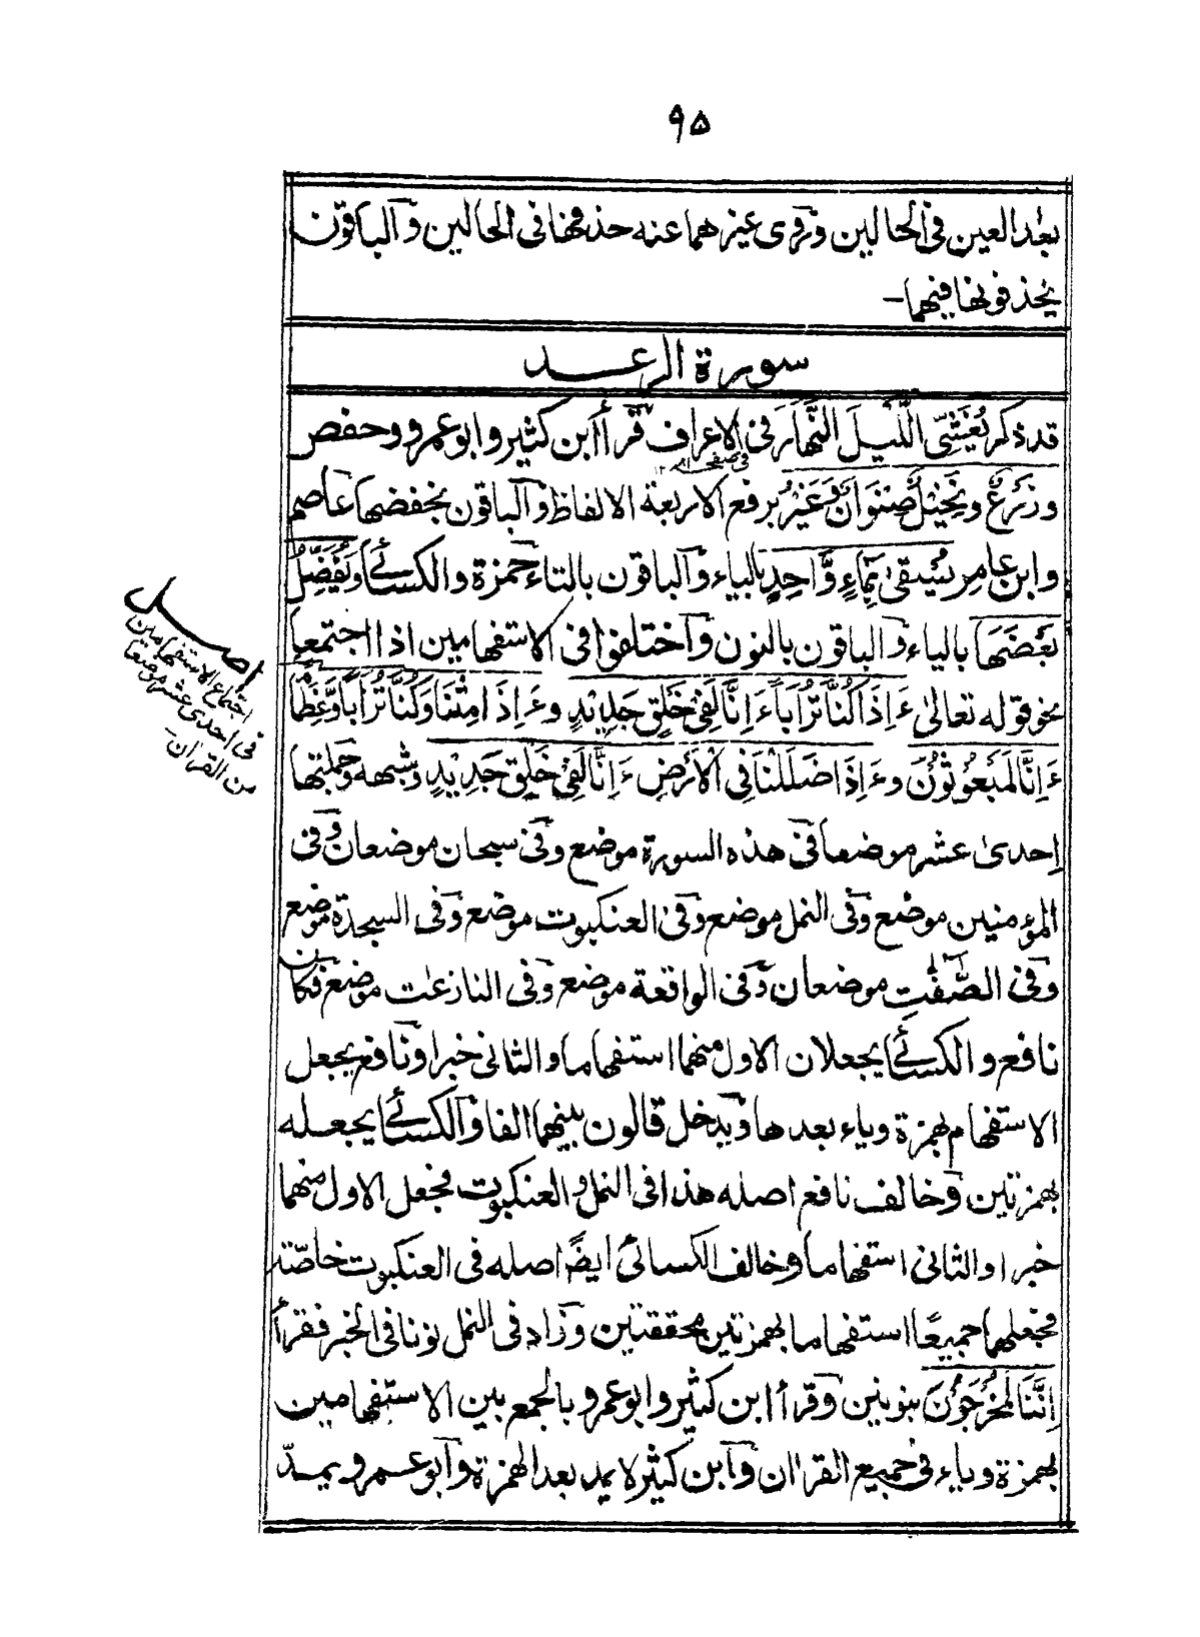 ۹۵
بعد العين فى الحالين وروى غيرهما عنه حذفها فى الحالين والباقون
يحذفونها فيهما—
سورة الرعد
قد ذكر يُغَشِّى الَّيْلَ النَّهَارَ فى الاعراف قرأ ابن كثير وابو عمرو وحفص
فى صفحه ۸۱ ۱۲
وزَرْعٌ ونَخِيْلٌ صِنْوَانٌ وَّغَيْرُ برفع الاربعة الالفاظ والباقون بخفضها عاصم
وابن عامر يُسْقىٰ بِمَاءٍ وَّاحِدٍ بالياء والباقون بالتاء حمزة والكسائى وَيُفَضِّلُ
بَعْضَهَا بالياء والباقون بالنون واختلفوا فى الاستفهامين اذا اجتمعا
نحو قوله تعالىٰ ءَاِذَا كُنَّا تُرَابًا ءَاِنَّا لَفِىْ خَلْقٍ جَدِيْدٍ وءَاِذَا مِتْنَا وَكُنَّا تُرَابًا وَّعِظَامًا
ءَاِنَّا لَمَبْعُوْثُوْنَ وءَاِذَا ضَلَلْنَا فِى الْاَرْضِ ءَاِنَّا لَفِىْ خَلْقٍ جَدِيْدٍ وشبهه وجملتها
اِحدىٰ عشر موضعا فى هذه السورة موضع وفى سبحان موضعان وفى
المؤمنين موضع وفى النمل موضع وفى العنكبوت موضع وفى السجدة موضع
وفى الصّٰفّٰت موضعان وفى الواقعة موضع وفى النازعٰت موضع فكان
نافع والكسائى يجعلان الاول منهما استفهاما والثانى خبرا ونافع يجعل
الاستفهام بهمزة وياء بعدها ويدخل قالون بينهما الفا والكسائى يجعله
بهمزتين وخالف نافع اصله هذا فى النمل والعنكبوت فجعل الاول منهما
خبرا والثانى استفهاما وخالف الكسائى ايضًا اصله فى العنكبوت خاصّة
فجعلهما جميعًا استفهاما بهمزتين محققتين وزاد فى النمل نونا فى الخبر فقرأ
اِنَّنَا لَمُخْرَجُوْنَ بنونين وقرأ ابن كثير وابو عمرو بالجمع بين الاستفهامين
بهمزة وياء فى جميع القراٰن وابن كثير لا يمد بعد الهمزة وابو عمرو يمدّ
اصل
اجتماع الاستفهامين
فى احدى عشر موضعا
من القراٰن